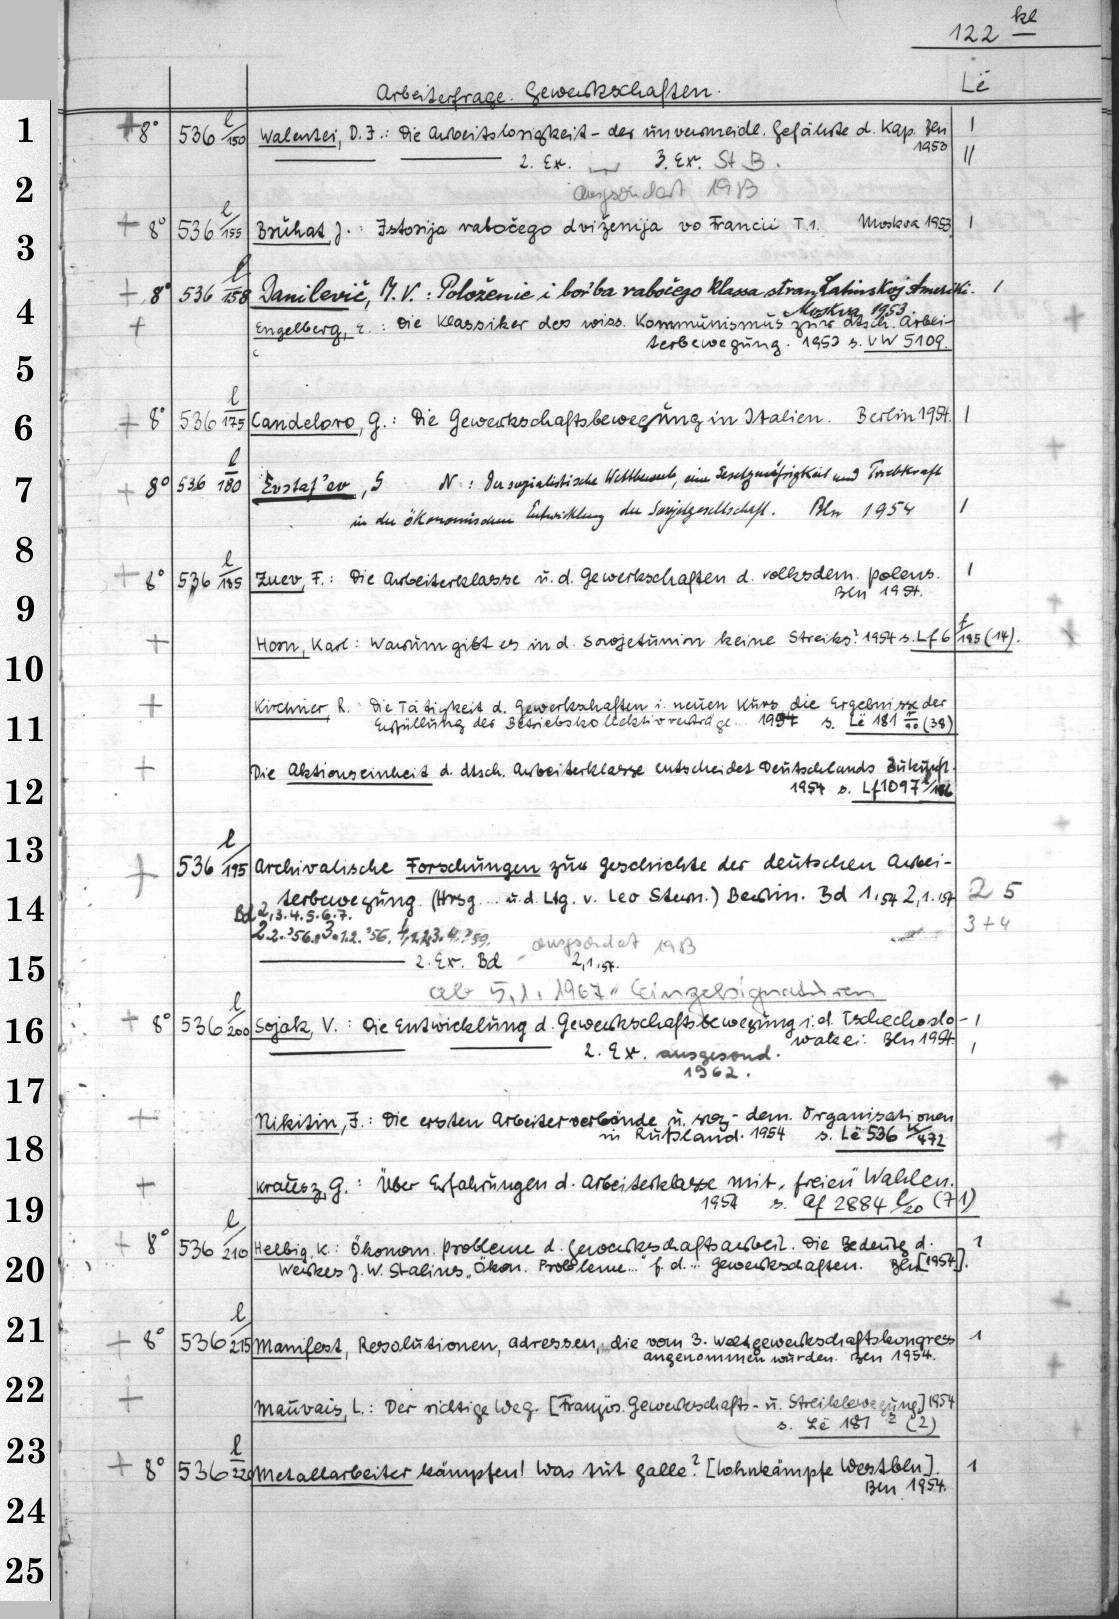 122 kl
Arbeiterfrage. Gewerkschaften. Lë
1 + 8° 536 l/150 Walentei, D. J.: Die Arbeitslosigkeit - der unvermeidl. Gefährte d. Kap. Bln 1
1950
2. Ex. 3. Ex. St B. 11
2 ausgesondert 1983
3 + 8° 536 l/155 Brühat, J.: Istorija rabočego dviženija vo Francii T 1. Moskva 1953 1
4 + 8° 536 l/158 Danilevič, M. V.: Položenie i bor'ba rabočego klassa stran Latinskoj Ameriki. 1
Moskva 1953.
+ Engelberg, E.: Die Klassiker des wiss. Kommunismus zur dtsch. Arbei-
terbewegung. 1953 s. VW 5109.
5
6 + 8° 536 l/175 Candeloro, G.: Die Gewerkschaftsbewegung in Italien. Berlin 1954. 1
7 + 8° 536 l/180 Evstaf'ev, G N: Der sozialistische Wettbewerb, eine Gesetzmäßigkeit und Triebkraft
in der ökonomischen Entwicklung der Sowjetgesellschaft. Bln 1954 1
8
+ 8° 536 l/185 Zuev, F.: Die Arbeiterklasse u. d. Gewerkschaften d. volksdem. Polens. 1
9 Bln 1954.
+ Horn, Karl: Warum gibt es in d. Sowjetunion keine Streiks? 1954 s. Lf 6 f/185 (14).
10
+ Kirchner, R. Die Tätigkeit d. Gewerkschaften i. neuen Kurs, die Ergebnisse der
11 Erfüllung der Betriebskollektivverträge... 1954 s. Lë 181 (38)
+ Die Aktionseinheit d. dtsch. Arbeiterklasse entscheidet Deutschlands Zukunft.
12 1954 s. Lf 1097
13
+ 536 l/195 Archivalische Forschungen zur Geschichte der deutschen Arbei-
14 terbewegung (Hrsg... u. d. Ltg. v. Leo Stern.) Berlin. Bd 1.54 2,1.54 2 5
Bd 2,3.4.5.6.7. 3+4
ausgesondert 1983
15 2. Ex. Bd 2,1.54.
ab 5,1. 1967 Einzelsignaturen
16 + 8° 536 l/200 Sojak, V.: Die Entwicklung d. Gewerkschaftsbewegung i. d. Tschechoslo- 1
wakei. Bln 1954.
2. Ex. ausgesond. 1
1962.
17
+ Nikitin, J.: Die ersten Arbeiterverbände u. soz-dem. Organisationen
18 in Rußland. 1954 s. Lë 536 k/472
+ Krausz, G.: Über Erfahrungen d. Arbeiterklasse mit „freien" Wahlen.
19 1954 s. Af 2884 l/20 (71)
+ 8° 536 l/210 Helbig, K.: Ökonom. Probleme d. Gewerkschaftsarbeit. Die Bedeutg d. 1
20 Werkes J. W. Stalins „Ökon. Probleme..." f. d... Gewerkschaften. Bln [1954].
21 + 8° 536 l/215 Manifest, Resolutionen, Adressen, die vom 3. Weltgewerkschaftskongress 1
angenommen wurden. Bln 1954.
22 + Mauvais, L.: Der richtige Weg. [Französ. Gewerkschafts- u. Streikbewegung] 1954
s. Lë 181 (2)
23 + 8° 536 l/220 Metallarbeiter kämpfen! Was tut Galle? [Lohnkämpfe Westbln]. 1
Bln 1954.
24
25